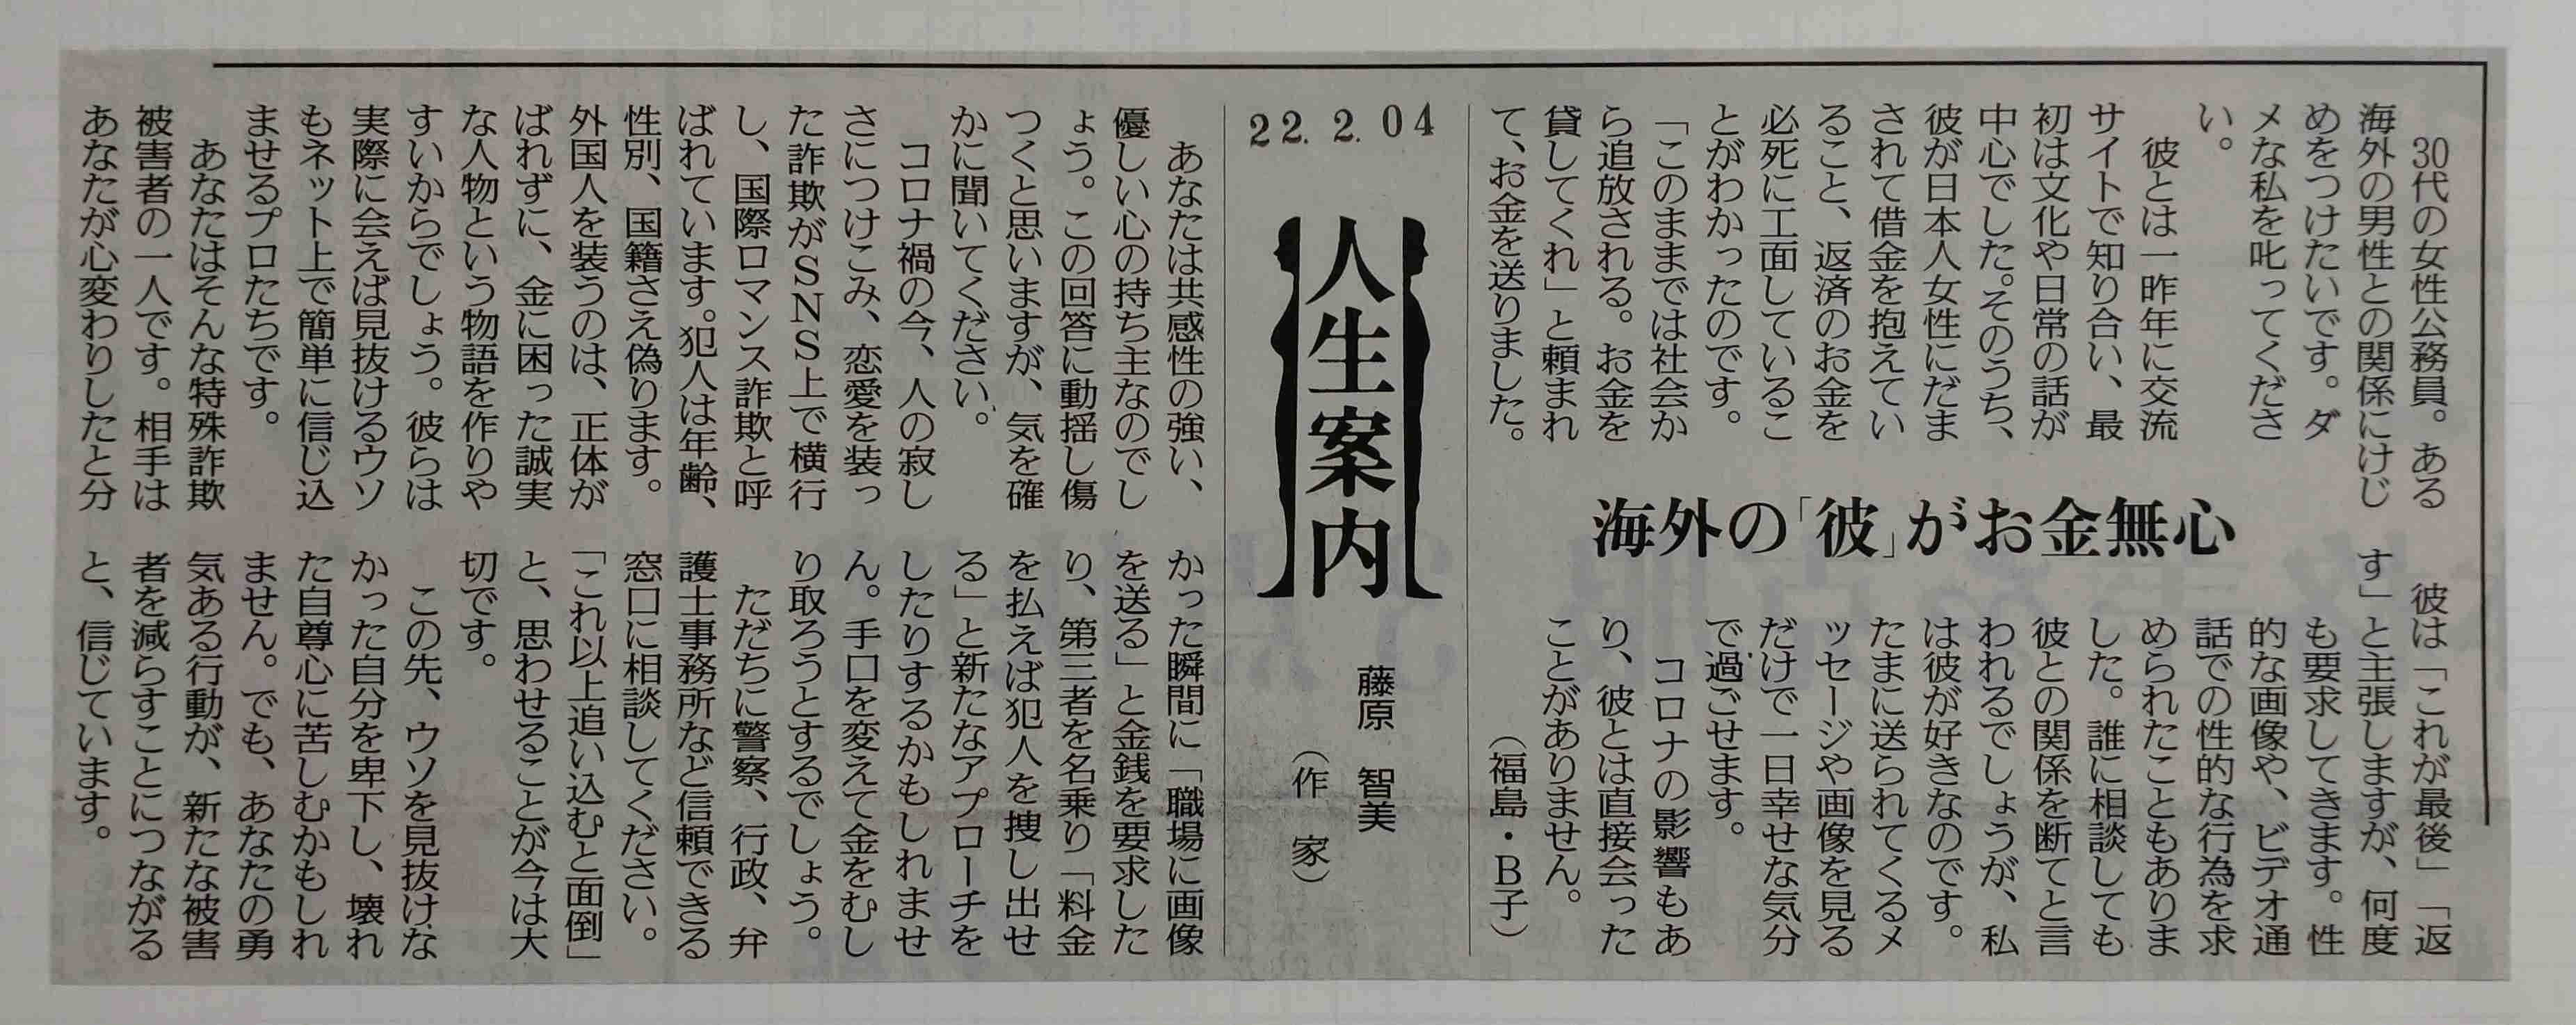 海外の「彼」がお金無心
30代の女性公務員。ある
海外の男性との関係にけじ
めをつけたいです。ダ
メな私を叱ってくださ
い。
彼とは一昨年に交流
サイトで知り合い、最
初は文化や日常の話が
中心でした。そのうち、
彼が日本人女性にだま
されて借金を抱えてい
ること、返済のお金を
必死に工面しているこ
とがわかったのです。
「このままでは社会か
ら追放される。お金を
貸してくれ」と頼まれ
て、お金を送りました。
彼は「これが最後」「返
す」と主張しますが、何度
も要求してきます。性
的な画像や、ビデオ通
話での性的な行為を求
められたこともありま
した。誰に相談しても
彼との関係を断てと言
われるでしょうが、私
は彼が好きなのです。
たまに送られてくるメ
ッセージや画像を見る
だけで一日幸せな気分
で過ごせます。
コロナの影響もあ
り、彼とは直接会った
ことがありません。
（福島・B子）
22. 2. 04
人生案内
藤原 智美
（作 家）
あなたは共感性の強い、
優しい心の持ち主なのでし
ょう。この回答に動揺し傷
つくと思いますが、気を確
かに聞いてください。
コロナ禍の今、人の寂し
さにつけこみ、恋愛を装っ
た詐欺がSNS上で横行
し、国際ロマンス詐欺と呼
ばれています。犯人は年齢、
性別、国籍さえ偽ります。
外国人を装うのは、正体が
ばれずに、金に困った誠実
な人物という物語を作りや
すいからでしょう。彼らは
実際に会えば見抜けるウソ
もネット上で簡単に信じ込
ませるプロたちです。
あなたはそんな特殊詐欺
被害者の一人です。相手は
あなたが心変わりしたと分
かった瞬間に「職場に画像
を送る」と金銭を要求した
り、第三者を名乗り「料金
を払えば犯人を捜し出せ
る」と新たなアプローチを
したりするかもしれませ
ん。手口を変えて金をむし
り取ろうとするでしょう。
ただちに警察、行政、弁
護士事務所など信頼できる
窓口に相談してください。
「これ以上追い込むと面倒」
と、思わせることが今は大
切です。
この先、ウソを見抜けな
かった自分を卑下し、壊れ
た自尊心に苦しむかもしれ
ません。でも、あなたの勇
気ある行動が、新たな被害
者を減らすことにつながる
と、信じています。